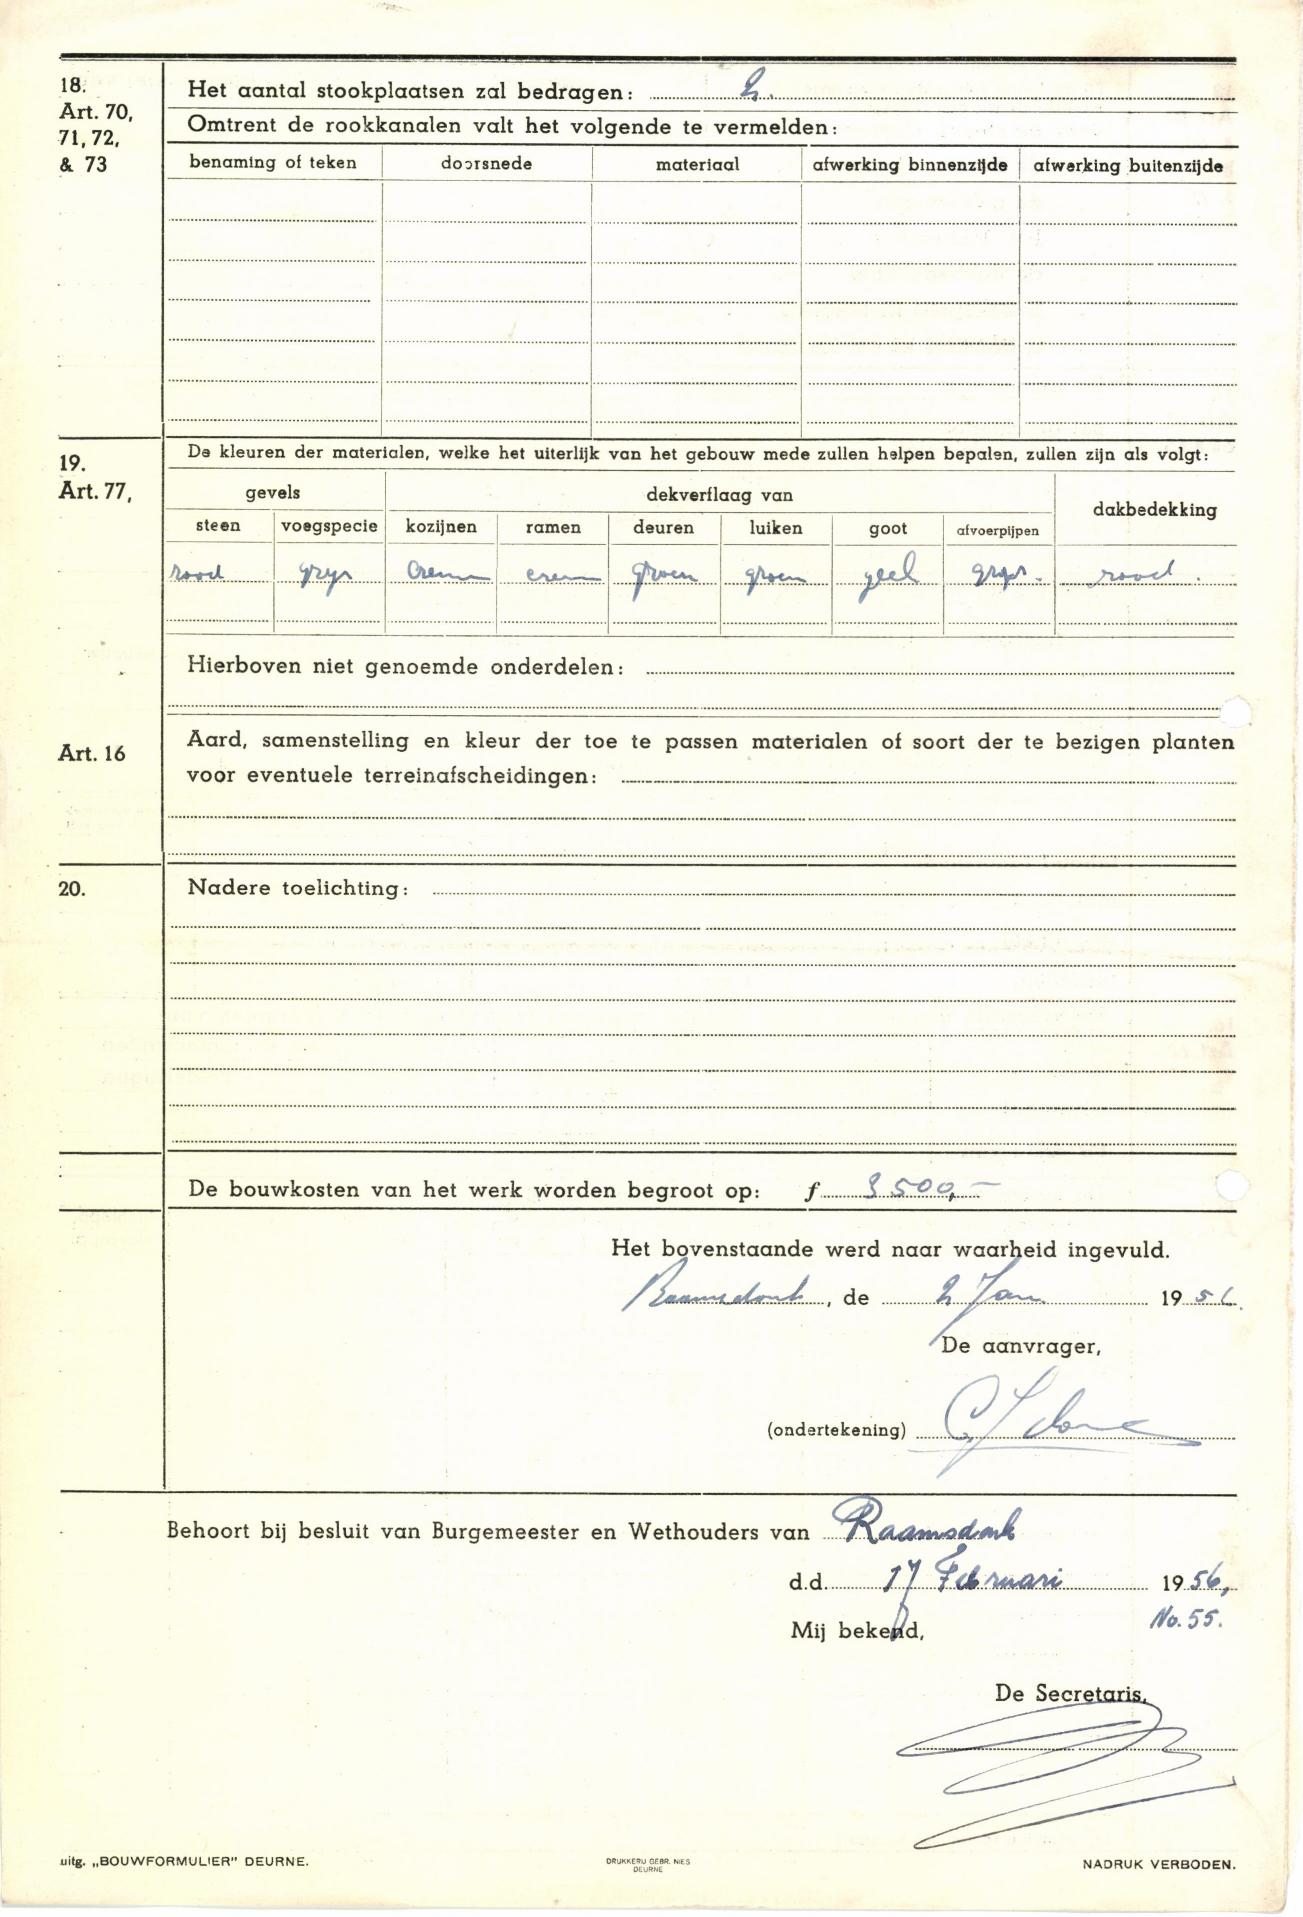 18.
Art. 70,
71, 72,
& 73
Het aantal stookplaatsen zal bedragen: 2.
Omtrent de rookkanalen valt het volgende te vermelden:
benaming of teken doorsnede materiaal afwerking binnenzijde afwerking buitenzijde
19.
Art. 77,
De kleuren der materialen, welke het uiterlijk van het gebouw mede zullen helpen bepalen, zullen zijn als volgt:
gevels dekverflaag van dakbedekking
steen voegspecie kozijnen ramen deuren luiken goot afvoerpijpen
rood grijs Creem creem groen groen geel grijs. rood.
Hierboven niet genoemde onderdelen:
Art. 16
Aard, samenstelling en kleur der toe te passen materialen of soort der te bezigen planten
voor eventuele terreinafscheidingen:
20.
Nadere toelichting:
De bouwkosten van het werk worden begroot op: f 3500,—
Het bovenstaande werd naar waarheid ingevuld.
Raamsdonk, de 2 Jan. 1956.
De aanvrager,
(ondertekening)
Behoort bij besluit van Burgemeester en Wethouders van Raamsdonk
d.d. 17 Februari 1956,
No. 55.
Mij bekend,
De Secretaris,
uitg. „BOUWFORMULIER" DEURNE.
DRUKKERIJ GEBR. NIES
DEURNE
NADRUK VERBODEN.